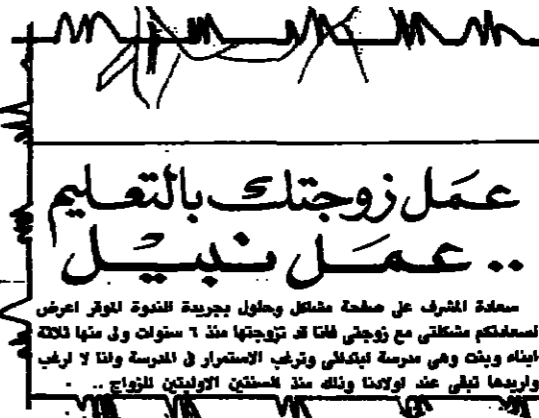 عمَل زوجتك بالتعليم
.. عمَل نبيل
سعادة المشرف على صفحة مشاكل وحلول بجريدة الندوة الموقر اعرض
لسعادتكم مشكلتى مع زوجتى فانا قد تزوجتها منذ ٦ سنوات ولى منها ثلاثة
ابناء وبنت وهى مدرسة ابتدائى وترغب الاستمرار فى المدرسة وانا لا ارغب
واريدها تبقى عند اولادنا وذلك منذ السنتين الاوليتين للزواج ..